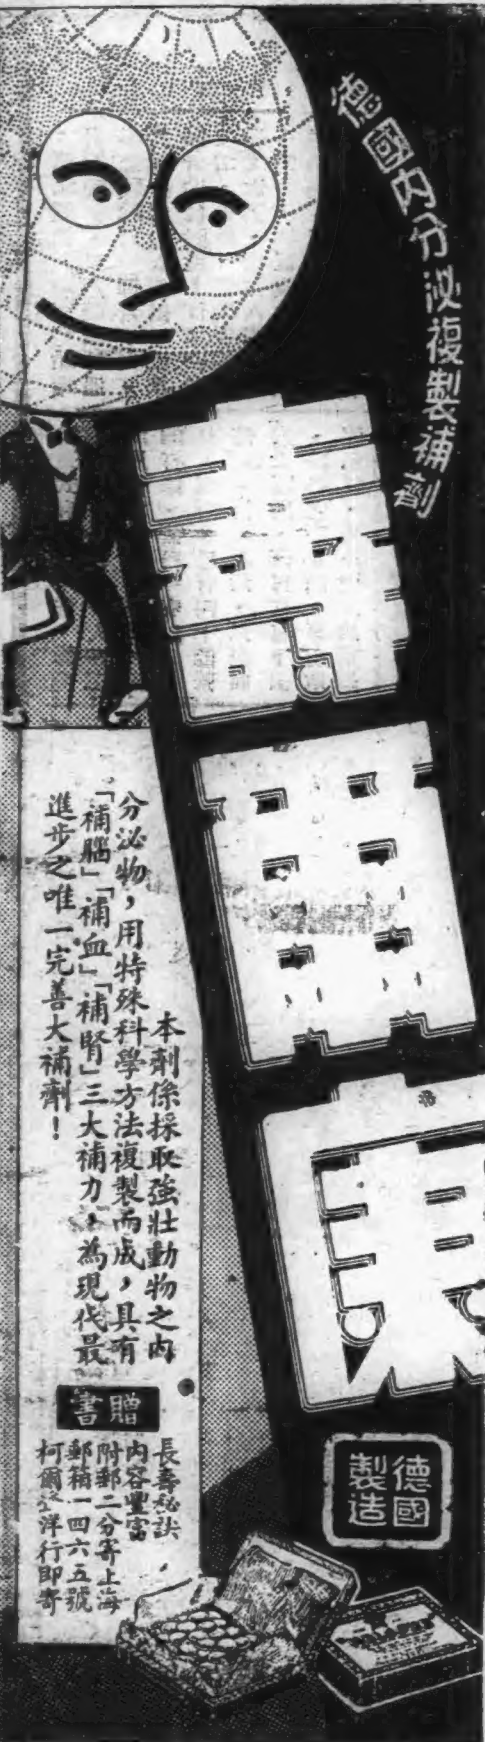 德國內分泌複製補劑
壽爾康
本劑係採取強壯動物之內
分泌物,用特殊科學方法複製而成,具有
「補腦」「補血」「補腎」三大補力,為現代最
進步之唯一完善大補劑!
贈書
長壽秘訣
內容豐富
附郵二分寄上海
郵箱一四六五號
柯爾洋行即寄
德國
製造